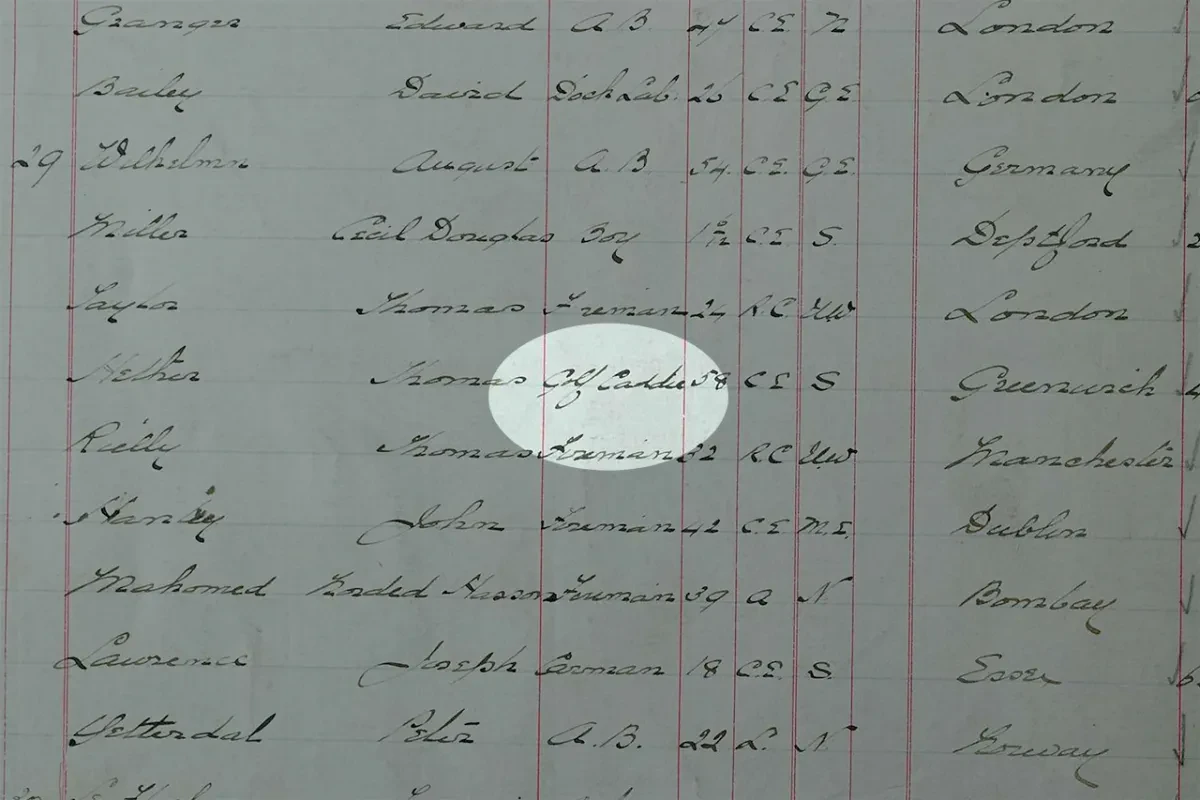 Granger Edward A.B. 47 C.E. N London
Bailey David Dock Lab. 26 C.E G.E London
29 Wilhelmn August A.B 54 C.E. G.E. Germany
Miller Cecil Douglas Boy C.E. S. Deptford 2
Taylor Thomas Fireman 24 R.C. U.W London
Thomas Golf Caddie 58 C E S Greenwich 4
Rielly Thomas Fireman 32 R.C U.W Manchester
John Fireman 42 C.E M.E. Dublin
Mahomed Hasson Fireman 39 A N Bombay
Lawrence Joseph Carman 18 C.E. S. Essex 6
Peter A.B. 22 L. N. Norway